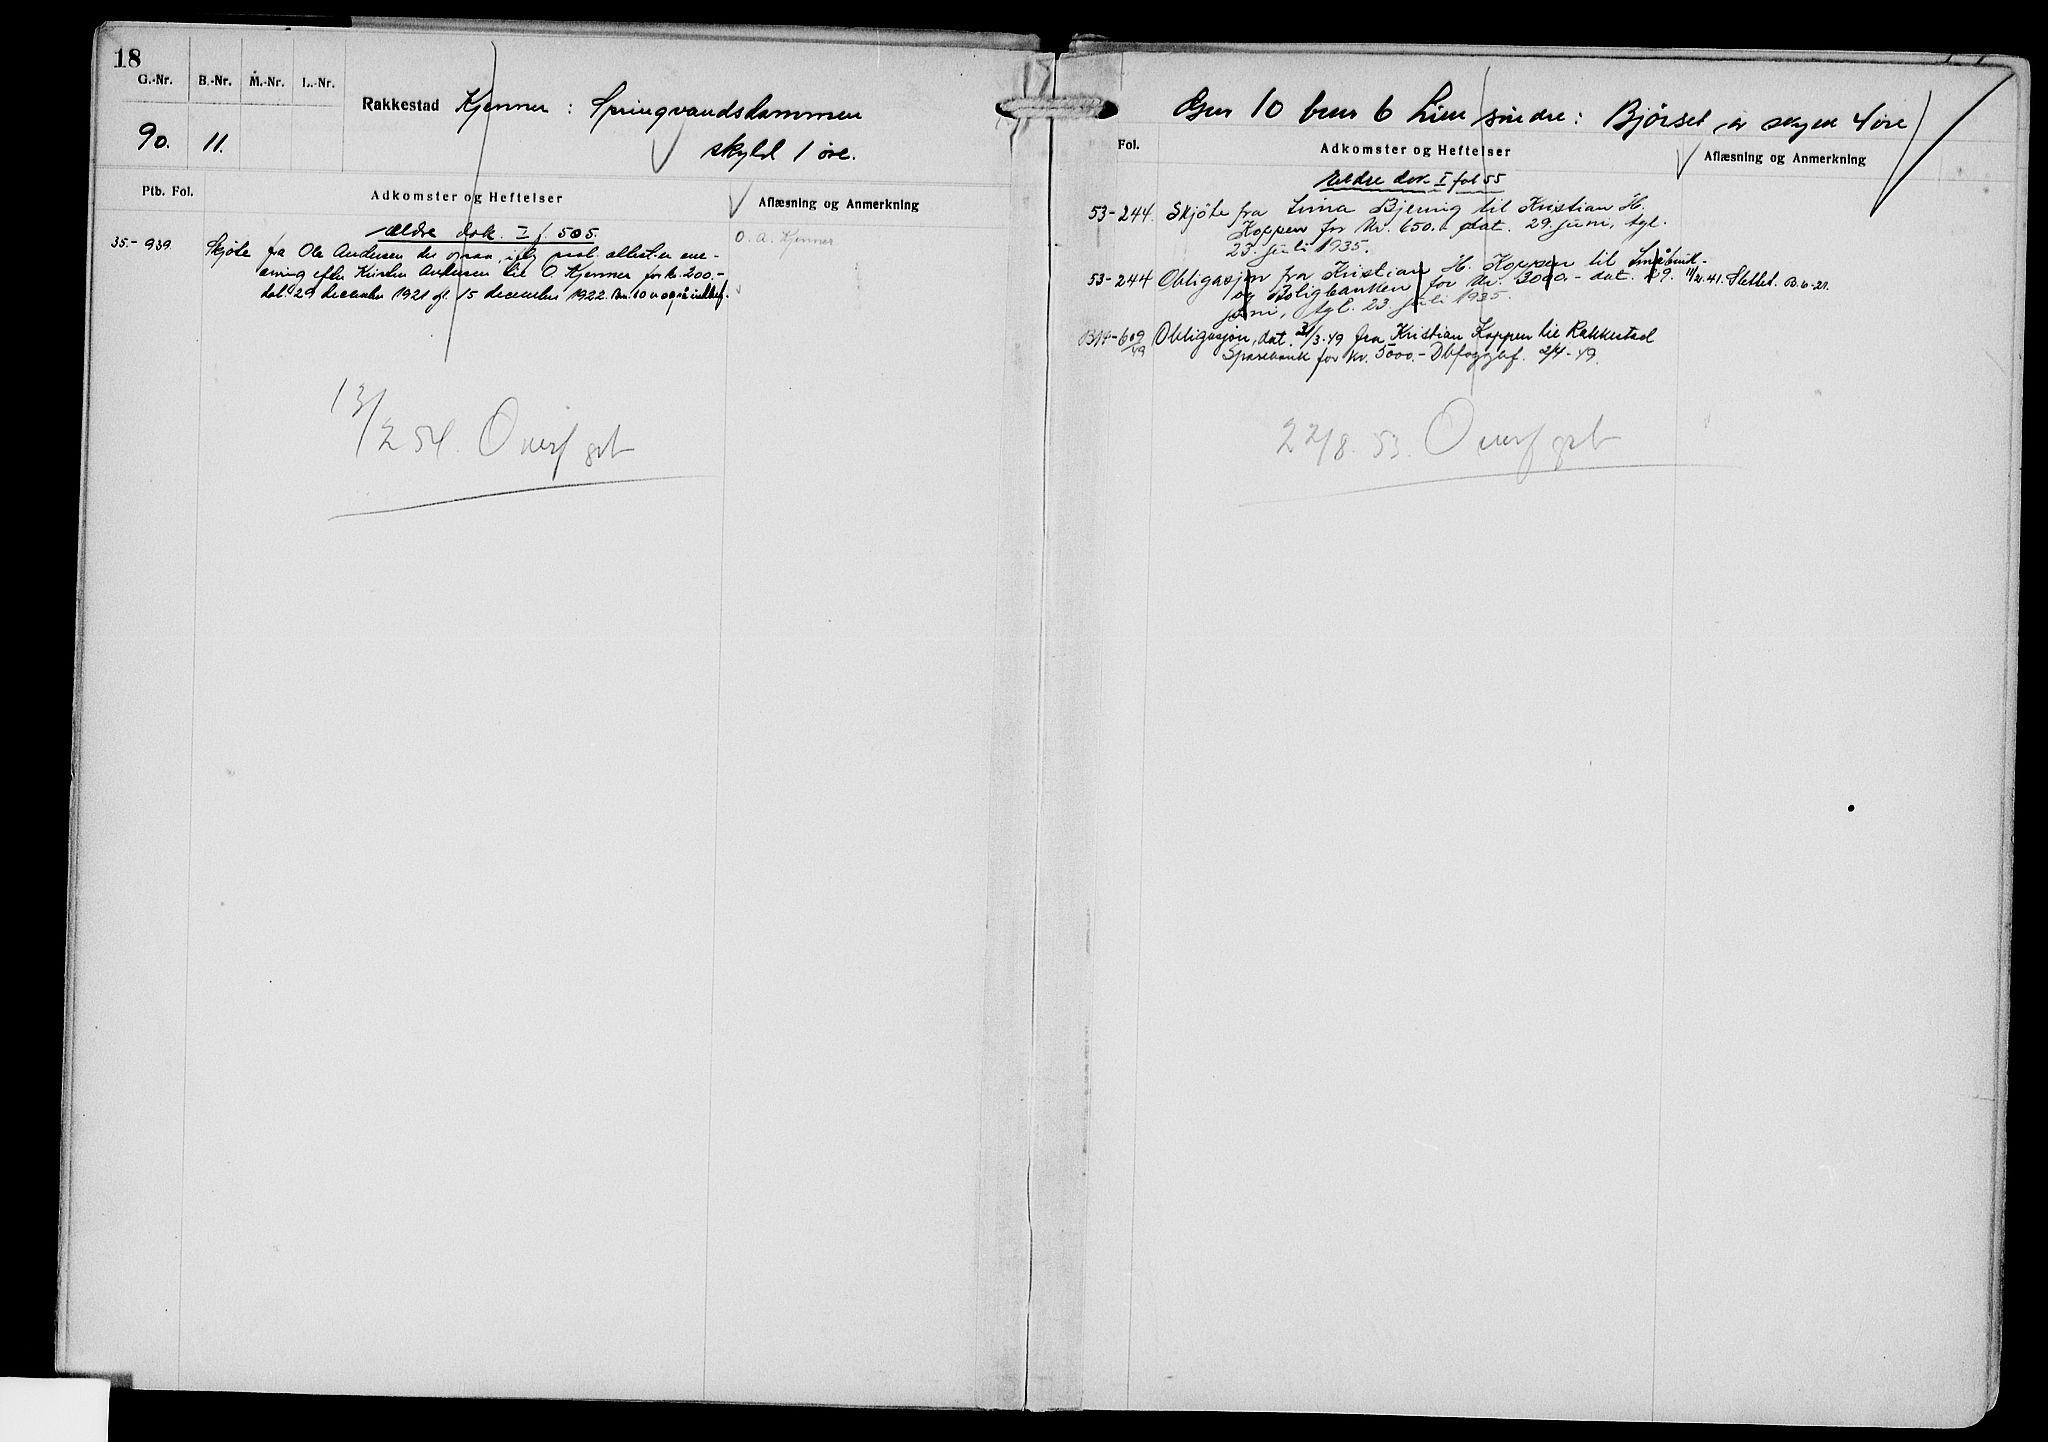 18
G.-Nr. B.-Nr. M.-Nr. L.-Nr.
Rakkestad Kjenner : Springvandsdammen
90. 11.
skyld 1 øre.
Ptb. Fol. Adkomster og Heftelser Aflæsning og Anmerkning
ældre dok. I f. 505.
35.- 939. Skjøte fra Ole Andersen
arving efter Kristen Andersen til O. Kjenner for kr. 200.-
dat. 29 december 1921 gl. 15 december 1922. Bnr. 10
O. A. Kjenner
13/2 54. Overf grb
17
Gnr 10 bnr 6 Lien søndre: Bjørset av skyld 4 øre
Fol. Adkomster og Heftelser Aflæsning og Anmerkning
Eldre dok I fol 55
53-244. Skjøte fra Bjerrig til Kristian H.
Koppen for kr. 650.- dat. 29. juni, tgl.
23. juli 1935.
53-244 Obligasjon fra Kristian H. Koppen til Småbruk-
og Boligbanken for kr. 3000.- dat. 29. 11/2.41. Slettet. B. 6-21.
juni, tgl. 23 juli 1935.
609/49 Obligasjon, dat. 31/3-49 fra Kristian Koppen til Rakkestad
Sparebank for kr. 5000.- Dbfogjbf. 2/4-49.
22/8. 53. Overf grb